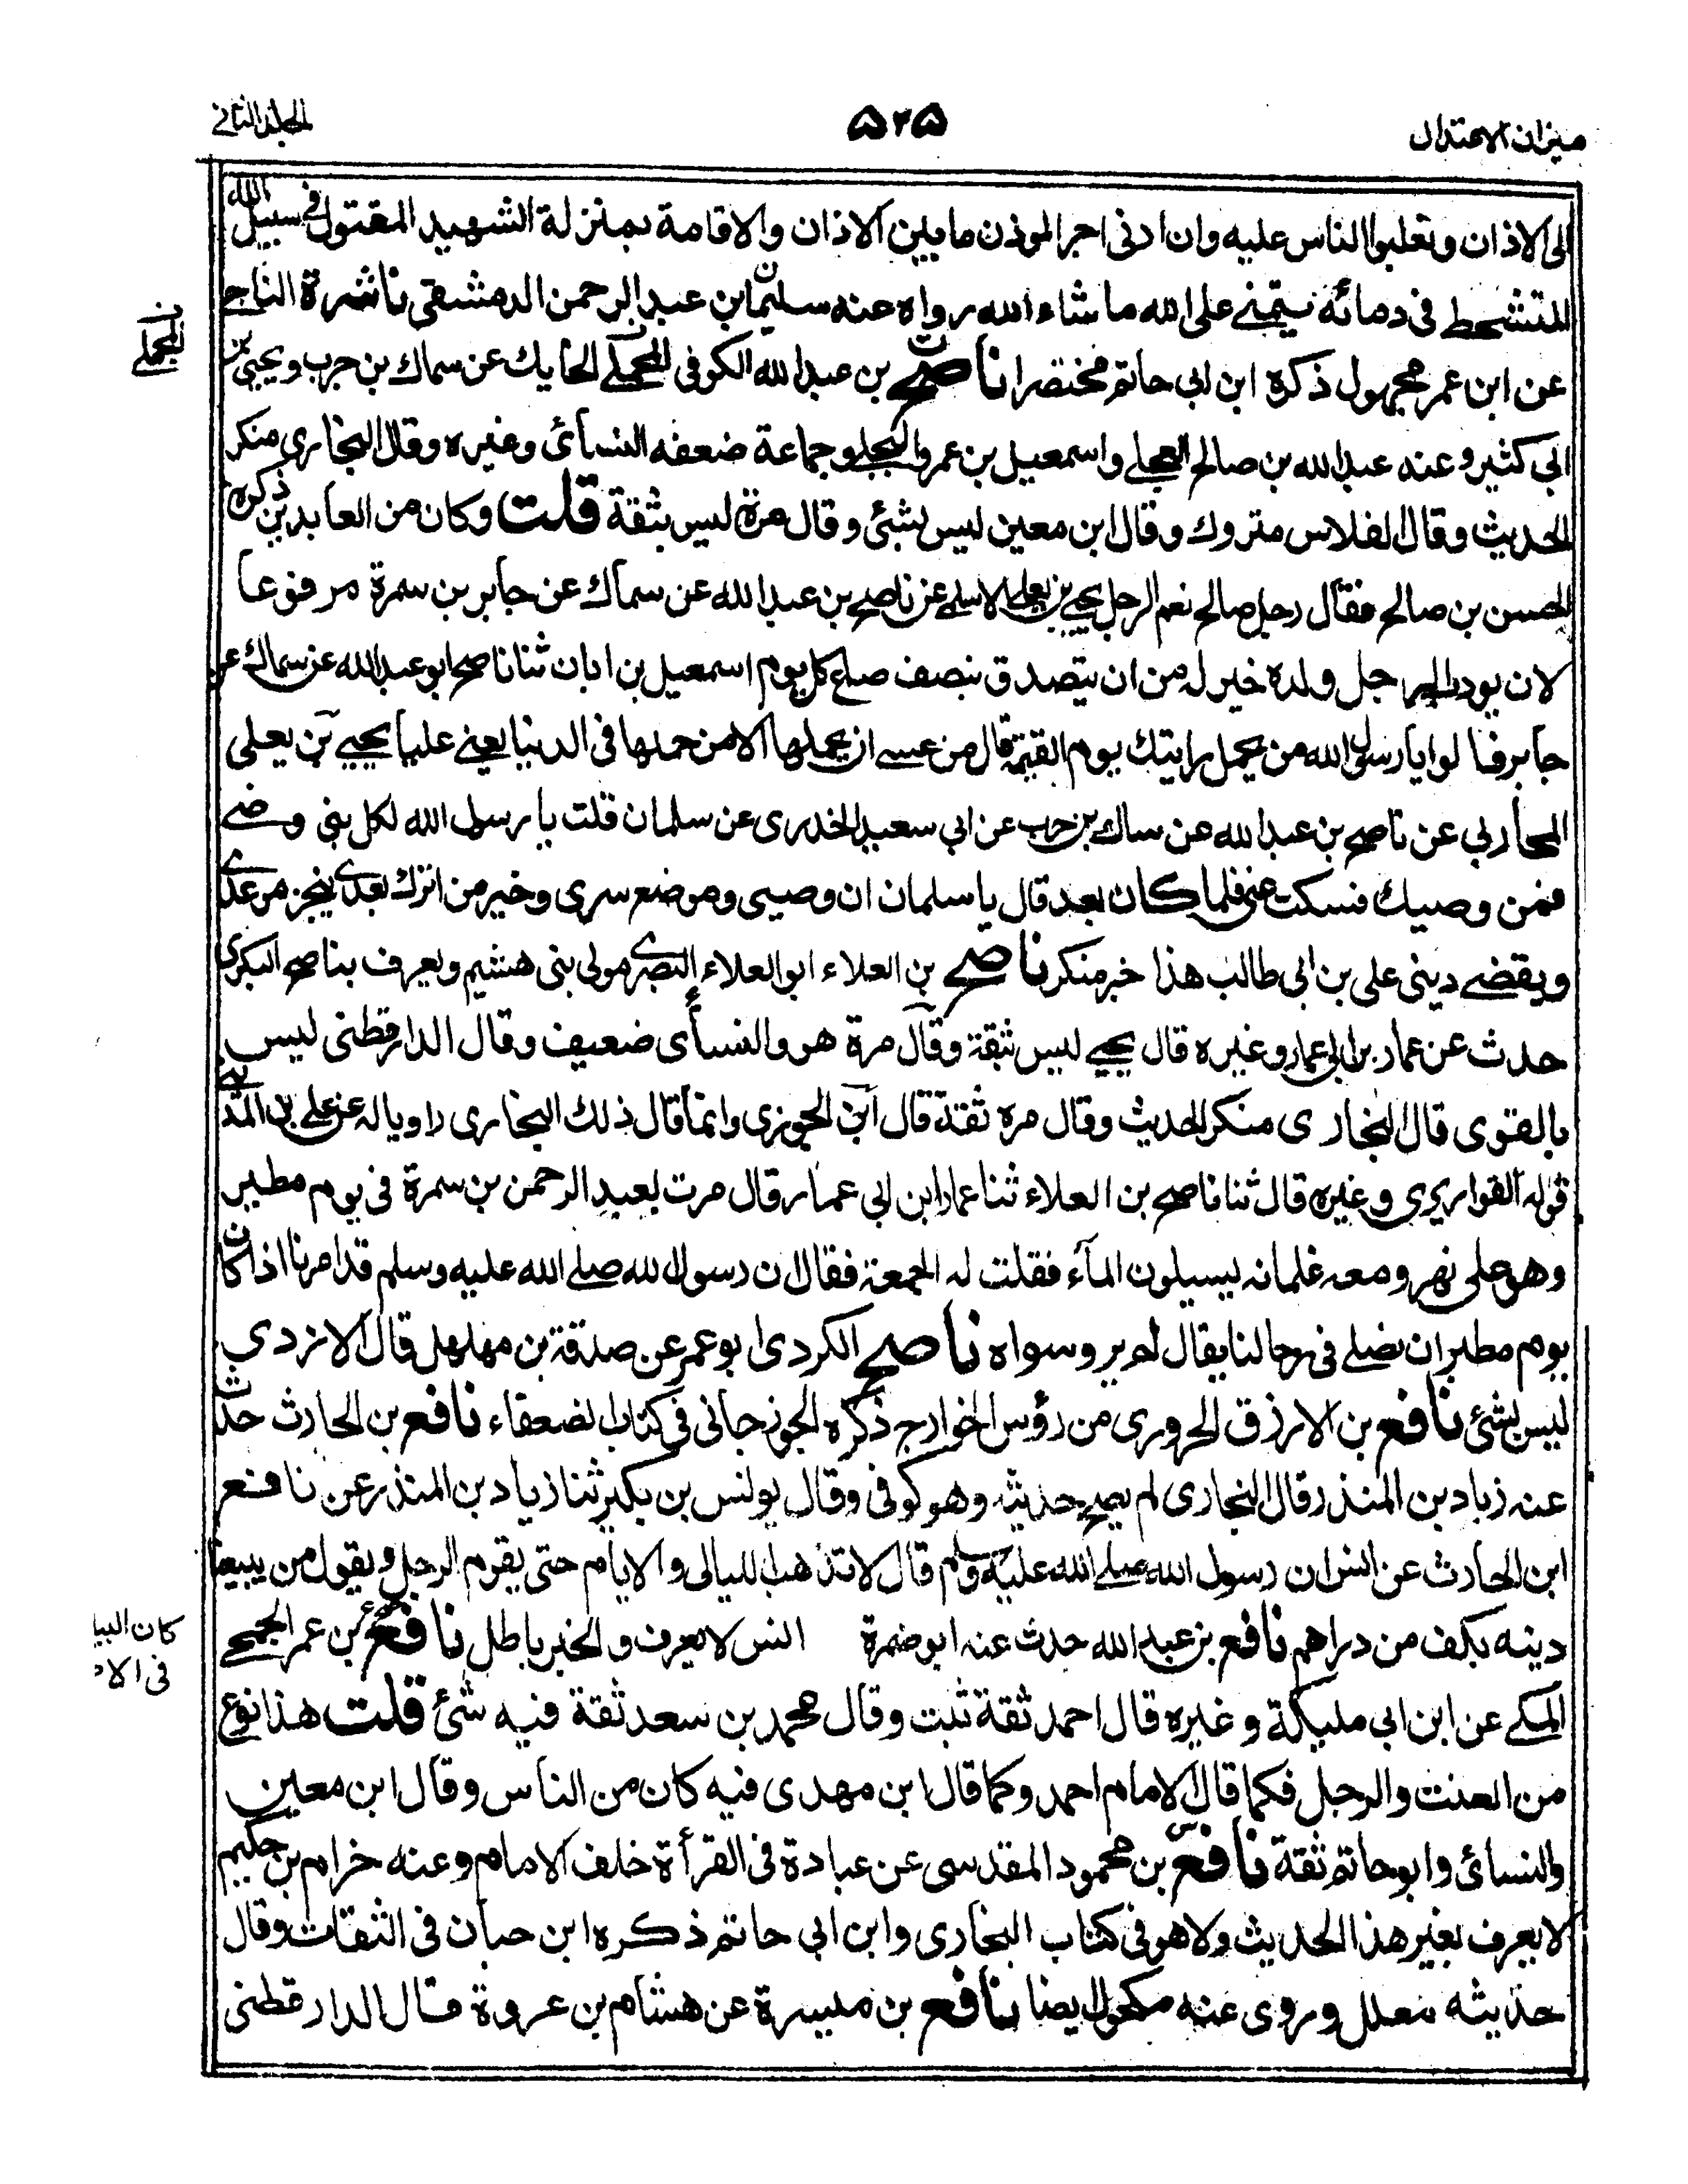 ميزان الاعتدال
٥٢٥
الجلد الثاني
الى الاذان وتغلبوا الناس عليه وان ادنى اجر الموذن ما بين الاذان والاقامة بمنزلة الشهيد المقتول في سبيل الله
المتشحط في دمائه يتمنے على الله ما شاء الله رواه عنه سليمان ابن عبد الرحمن الدمشقى ناشرة الناجے
عن ابن عمر مجهول ذكره ابن ابى حاتم مختصرا ناصح بن عبد الله الكوفى المحملے الحايك عن سماك بن حرب ويحيى بن
المحملے
ابى كثير وعنه عبد الله بن صالح العجلے واسمعيل بن عمرو البجلے وجماعة ضعفه النسائى وغيره وقال البخارى منكر
الحديث وقال الفلاس متروك وقال ابن معين ليس بشئى وقال مرة ليس بثقة قلت وكان من العابدين ذكره
الحسن بن صالح فقال رجل صالح نعم الرجل يحيے بن يعلے الاسلمے عن ناصح بن عبد الله عن سماك عن جابر بن سمرة مرفوعا
لان يودب الرجل ولده خير له من ان يتصدق بنصف صاع كل يوم اسمعيل بن ابان ثنا ناصح ابو عبد الله عن سماك عن
جابر قالوا يا رسول الله من يحمل رايتك يوم القيمة قال من عسے ان يحملها الا من حملها فى الدنيا يعنے عليا يحيے بن يعلى
المحاربي عن ناصح بن عبد الله عن سماك بن حرب عن ابي سعيد الخدرى عن سلمان قلت يا رسول الله لكل بنى وصے
فمن وصيك فسكت عنى فلما كان بعد قال يا سلمان ان وصيى وموضع سرى وخير من اترك بعدى ينجز موعدے
ويقضے دينى على بن ابى طالب هذا خبر منكر ناصح بن العلاء ابو العلاء البصرے مولى بنى هشيم ويعرف بناصح البكرى
حدث عن عمار بن ابى عمار وغيره قال يحيے ليس ثقة وقال مرة هو والنسأى ضعيف وقال الدارقطنى ليس
بالقوى قال البخارى منكر الحديث وقال مره ثقة قال ابن الجوزى وانما قال ذلك البخارى راويا له عن على بن المدينے
قوله القواريرى وغيره قال ثنا ناصح بن العلاء ثنا عمار ابن ابى عمار قال مرت بعبد الرحمن بن سمرة فى يوم مطير
وهو على نهر ومعه غلمانه يسيلون المآء فقلت له الجمعة فقال ان رسول الله صلے الله عليه وسلم قد امرنا اذا كان
يوم مطير ان نصلے فى رحالنا يقال لم يرو سواه ناصح الكردى ابو عمر عن صدقة بن مهلهل قال الازدي
ليس بشئ نافع بن الازرق الحرورى من رؤس الخوارج ذكره الجوزجانى فى كتاب الضعفاء نافع بن الحارث حدث
عنه زياد بن المنذر قال البخارى لم يصح حديثه وهو كوفى وقال يونس بن بكير ثنا زياد بن المنذر عن نافع
ابن الحارث عن انس ان رسول الله صلے الله عليه وسلم قال لا تذهب الليالى والايام حتى يقوم الرجل ويقول من يبيعنا
دينه بكف من دراهم نافع بن عبد الله حدث عنه ابو ضمرة انس لا يعرف والخبر باطل نافع بن عمر الجمحے
كان البيا
فى الا
المكے عن ابن ابي مليكة وغيره قال احمد ثقة ثبت وقال محمد بن سعد ثقة فيه شئ قلت هذا نوع
من العنت والرجل فكما قال الامام احمد وكما قال ابن مهدى فيه كان من الناس وقال ابن معين
والنسائى وابو حاتم ثقة نافع بن محمود المقدسى عن عبادة فى القرأة خلف الامام وعنه حرام بن حكيم
لا يعرف بغير هذا الحديث ولا هو فى كتاب البخارى وابن ابى حاتم ذكره ابن حبان فى الثقات وقال
حديثه معلل وروى عنه مكحول ايضا نافع بن ميسرة عن هشام بن عروة قال الدارقطنى